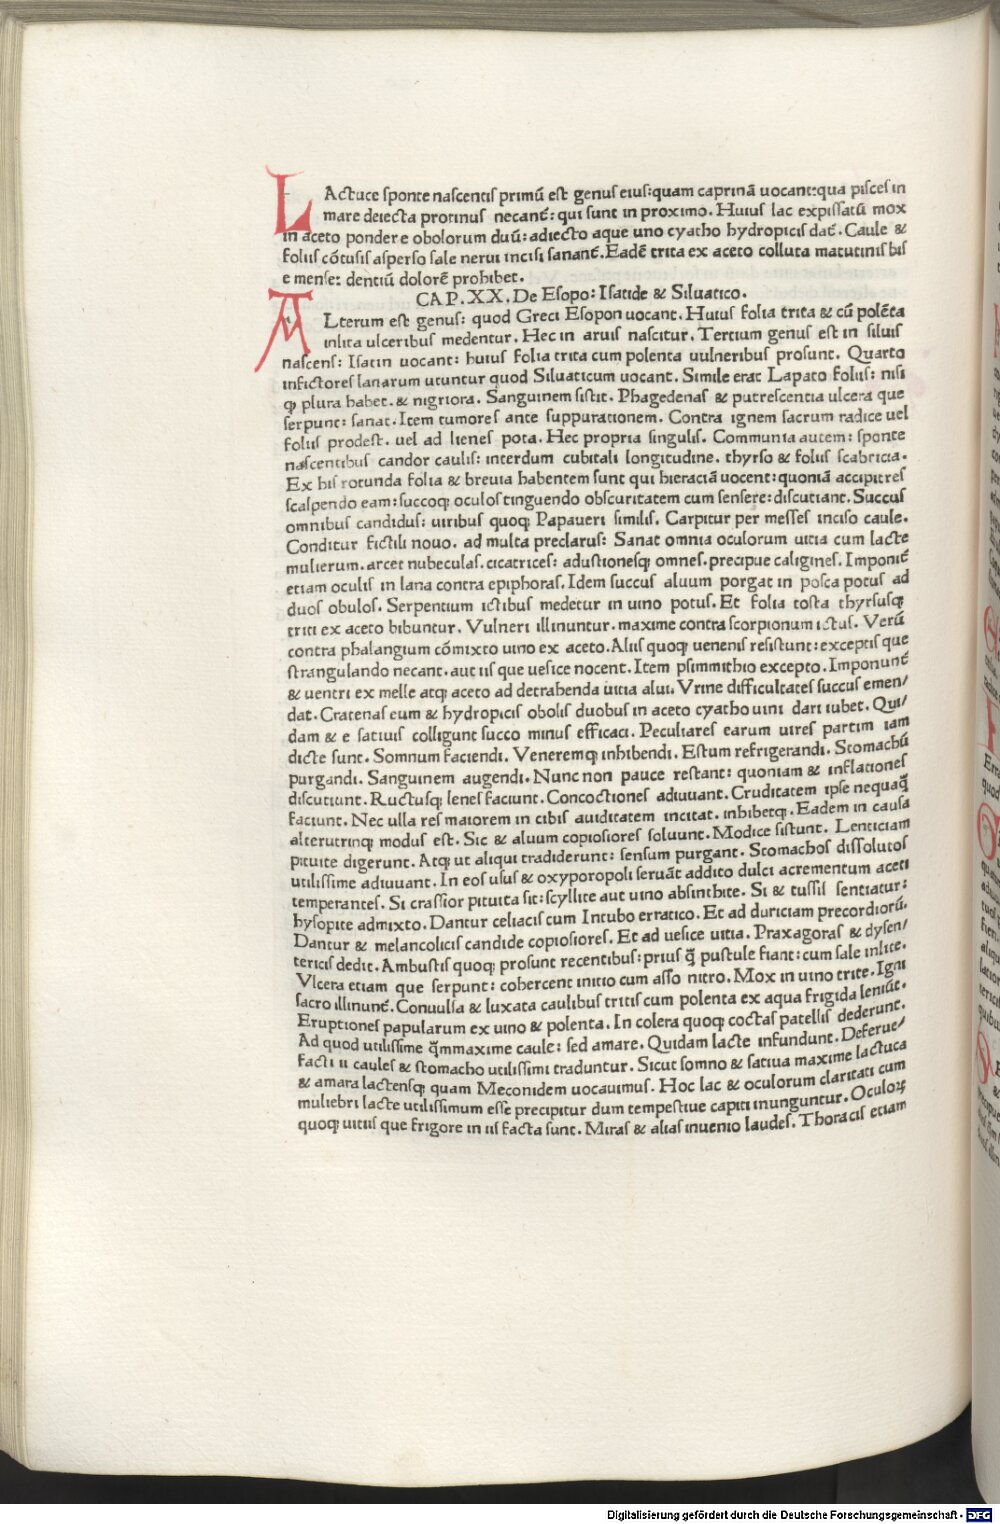 LActuce ſponte naſcentis primū eſt genus eiuſ:quam caprinā uocant:qua piſceſ in
mare deiecta protinuſ necant̄: qui ſunt in proximo. Huiuſ lac expiſſatū mox
in aceto pondere obolorum duū: adiecto aque uno cyatho hydropiciſ dat̄. Caule &
foliiſ cōtuſiſ aſperſo ſale nerui inciſi ſanant̄. Eadē trita ex aceto colluta matutiniſ biſ
e menſe: dentiū dolorē prohibet.
CAP. XX. De Eſopo: Iſatide & Siluatico.
ALterum eſt genuſ: quod Greci Eſopon uocant. Huiuſ folia trita & cū polēta
inlita ulceribuſ medentur. Hec in aruiſ naſcitur. Tertium genuſ eſt in ſiluiſ
naſcenſ: Iſatin uocant: huiuſ folia trita cum polenta uulneribuſ proſunt. Quarto
infictoreſ lanarum utuntur quod Siluaticum uocant. Simile erat Lapato foliiſ: niſi
ꝙ plura habet. & nigriora. Sanguinem ſiſtit. Phagedenaſ & putreſcentia ulcera que
ſerpunt: ſanat. Item tumoreſ ante ſuppurationem. Contra ignem ſacrum radice uel
foliiſ prodeſt. uel ad lieneſ pota. Hec propria ſinguliſ. Communia autem: ſponte
naſcentibuſ candor cauliſ: interdum cubitali longitudine. thyrſo & foliiſ ſcabricia.
Ex hiſ rotunda folia & breuia habentem ſunt qui hieraciā uocent: quoniā accipitreſ
ſcalpendo eam: ſuccoq; oculoſ tinguendo obſcuritatem cum ſenſere: diſcutiant. Succuſ
omnibuſ candiduſ: uiribuſ quoq; Papaueri ſimiliſ. Carpitur per meſſeſ inciſo caule.
Conditur fictili nouo. ad multa preclaruſ: Sanat omnia oculorum uitia cum lacte
mulierum. arcet nubeculaſ. cicatriceſ: aduſtioneſq; omneſ. precipue caligineſ. Imponit̄
etiam oculiſ in lana contra epiphoraſ. Idem ſuccuſ aluum porgat in poſca potuſ ad
duoſ obuloſ. Serpentium ictibuſ medetur in uino potuſ. Et folia toſta thyrſuſq;
triti ex aceto bibuntur. Vulneri illinuntur. maxime contra ſcorpionum ictuſ. Verū
contra phalangium cōmixto uino ex aceto. Aliiſ quoq; ueneniſ reſiſtunt: exceptiſ que
ſtrangulando necant. aut iiſ que ueſice nocent. Item pſimmithio excepto. Imponunt̄
& uentri ex melle atq; aceto ad detrahenda uitia alui. Vrine difficultateſ ſuccuſ emen/
dat. Cratenaſ eum & hydropiciſ oboliſ duobuſ in aceto cyatho uini dari iubet. Qui/
dam & e ſatiuiſ colligunt ſucco minuſ efficaci. Peculiareſ earum uireſ partim iam
dicte ſunt. Somnum faciendi. Veneremq; inhibendi. Eſtum refrigerandi. Stomachū
purgandi. Sanguinem augendi. Nunc non pauce reſtant: quoniam & inflationeſ
diſcutiunt. Ructuſq; leneſ faciunt. Concoctioneſ adiuuant. Cruditatem ipſe nequaq̄
faciunt. Nec ulla reſ maiorem in cibiſ auiditatem incitat. inhibetq;. Eadem in cauſa
alterutrinq; moduſ eſt. Sic & aluum copioſioreſ ſoluunt. Modice ſiſtunt. Lenticiam
pituite digerunt. Atq; ut aliqui tradiderunt: ſenſum purgant. Stomachoſ diſſolutoſ
utiliſſime adiuuant. In eoſ uſuſ & oxyporopoli ſeruāt addito dulci acrementum aceti
temperanteſ. Si craſſior pituita ſit: ſcyllite aut uino abſinthite. Si & tuſſiſ ſentiatur:
hyſopite admixto. Dantur celiaciſ cum Intubo erratico. Et ad duriciam precordiorū.
Dantur & melancoliciſ candide copioſioreſ. Et ad ueſice uitia. Praxagoraſ & dyſen/
tericiſ dedit. Ambuſtiſ quoq; proſunt recentibuſ: priuſ q̄ puſtule fiant: cum ſale inlite.
Vlcera etiam que ſerpunt: cohercent initio cum aſſo nitro. Mox in uino trite. Igni
ſacro illinunt̄. Conuulſa & luxata caulibuſ tritiſ cum polenta ex aqua frigida leniūt.
Eruptioneſ papularum ex uino & polenta. In colera quoq; coctaſ patelliſ dederunt.
Ad quod utiliſſime q̄mmaxime caule: ſed amare. Quidam lacte infundunt. Deferue/
facti ii cauleſ & ſtomacho utiliſſimi traduntur. Sicut ſomno & ſatiua maxime lactuca
& amara lactenſq; quam Meconidem uocauimuſ. Hoc lac & oculorum claritati cum
muliebri lacte utiliſſimum eſſe precipitur dum tempeſtiue capiti inunguntur. Oculoꝝ
quoq; uitiiſ que frigore in iiſ facta ſunt. Miraſ & aliaſ inuenio laudeſ. Thoraciſ etiam
Digitalisierung gefördert durch die Deutsche Forschungsgemeinschaft - DFG